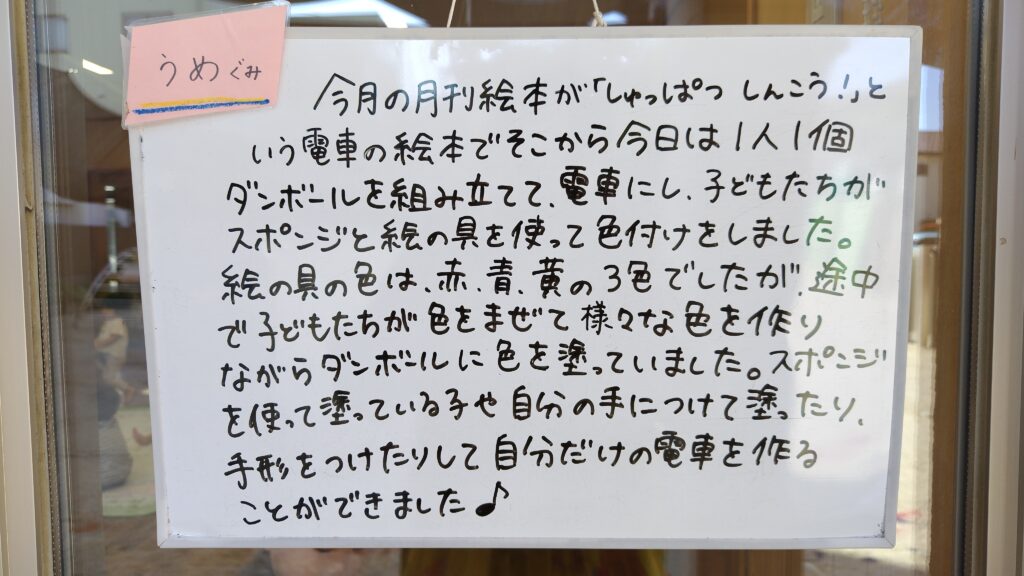 うめぐみ
今月の月刊絵本が「しゅっぱつ しんこう!」と
いう電車の絵本でそこから今日は1人1個
ダンボールを組み立てて、電車にし、子どもたちが
スポンジと絵の具を使って色付けをしました。
絵の具の色は、赤、青、黄の3色でしたが、途中
で子どもたちが色をまぜて様々な色を作り
ながらダンボールに色を塗っていました。スポンジ
を使って塗っている子や自分の手につけて塗ったり、
手形をつけたりして自分だけの電車を作る
ことができました♪